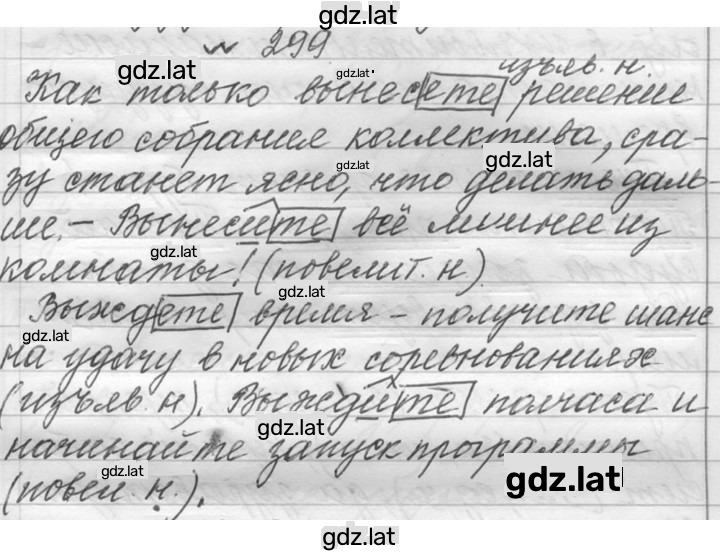 gdz.lat
№ 299
gdz.lat
gdz.lat
изъяв. н.
Как только вынесете решение
общего собрания коллектива, сра-
gdz.lat
gdz.lat
зу станет ясно, что делать даль-
ше. – Вынесите всё лишнее из
gdz.lat
комнаты! (повелит. н).
gdz.lat
Выждете время – получите шанс
gdz.lat
на удачу в новых соревнованиях
(изъяв. н). Выждите полчаса и
gdz.lat
начинайте запуск программы
gdz.lat
gdz.lat
(повел. н.).
gdz.lat